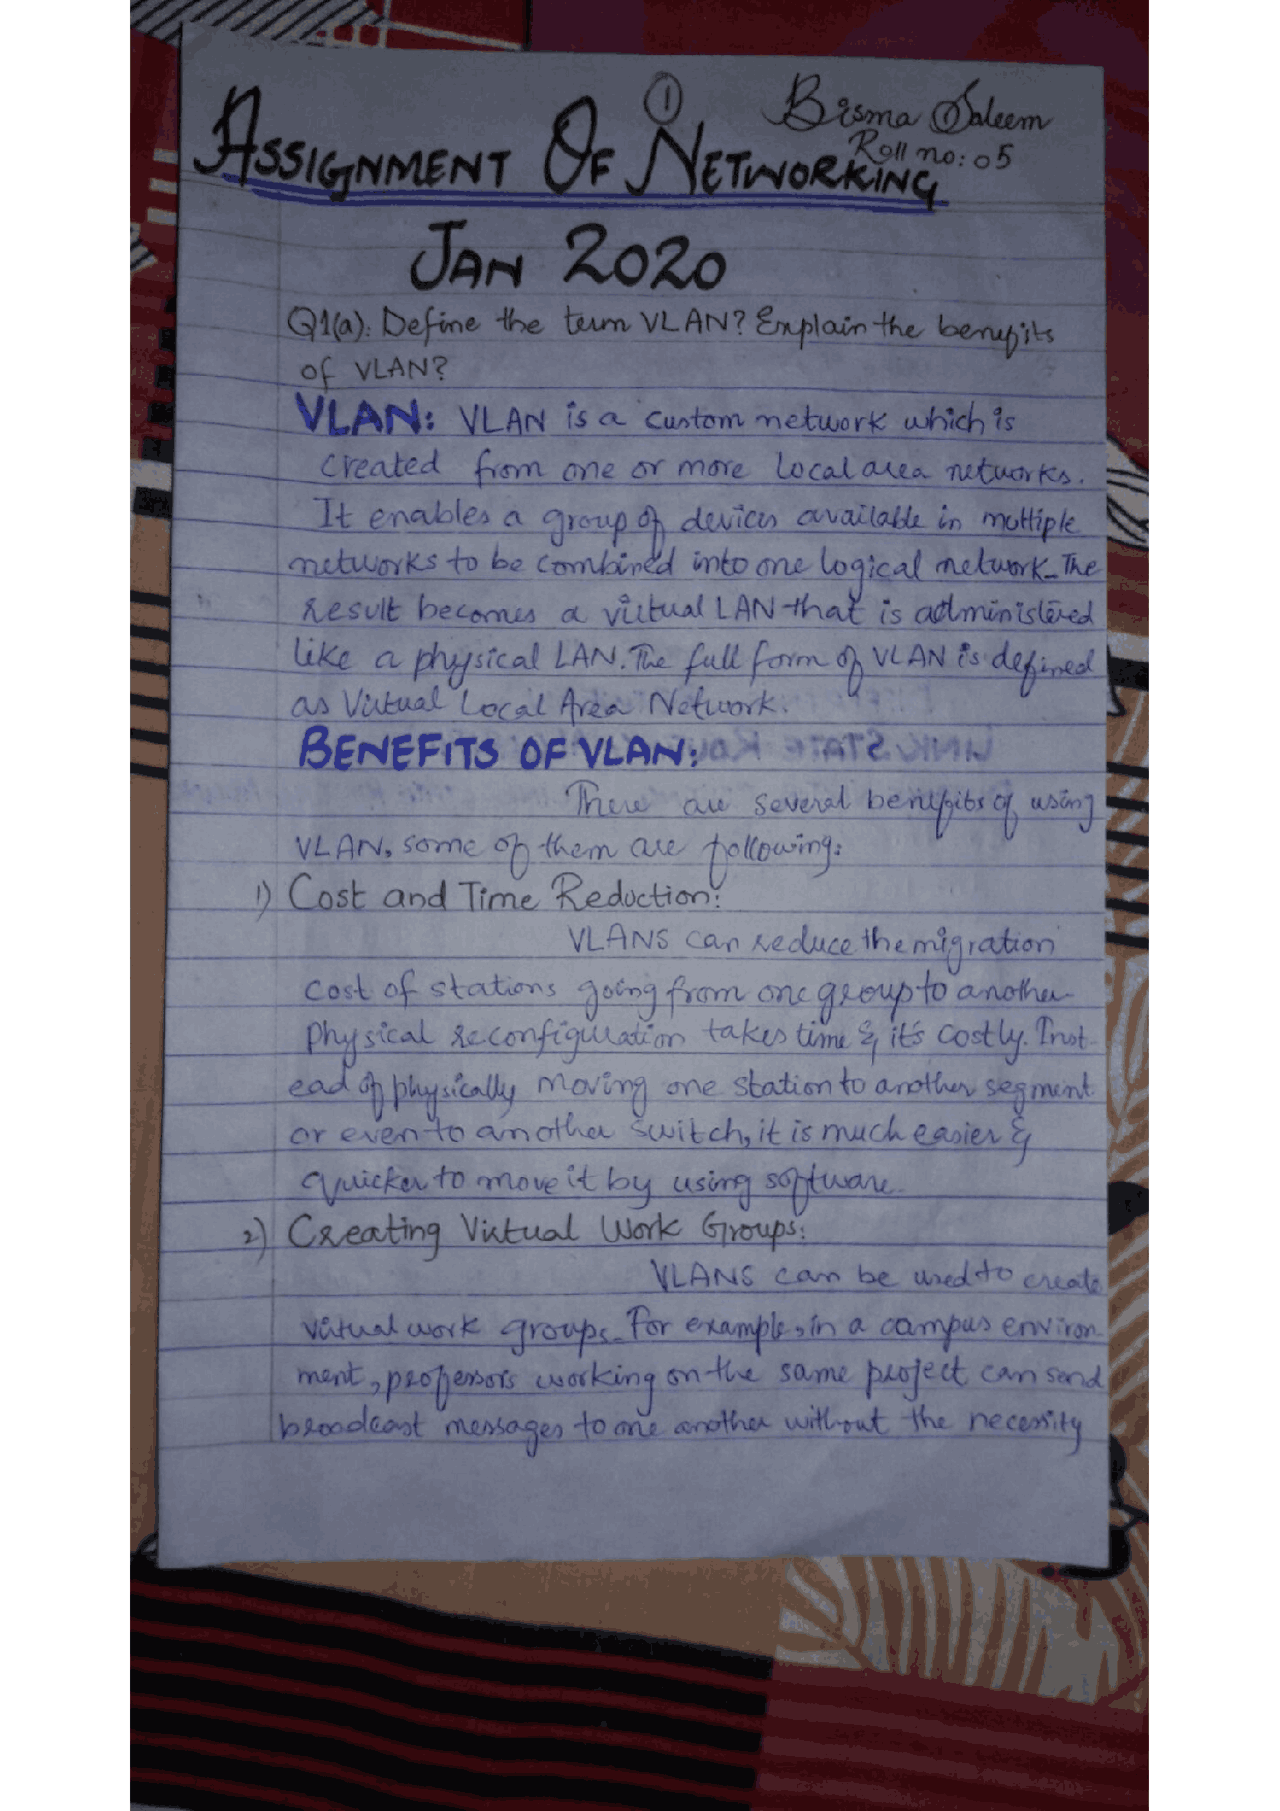 ①
Bisma Saleem
Roll no: 05
ASSIGNMENT OF NETWORKING
JAN 2020
Q1(a): Define the term VLAN? Explain the benefits
of VLAN?
VLAN: VLAN is a custom network which is
created from one or more local area networks.
It enables a group of devices available in multiple
networks to be combined into one logical network. The
result becomes a virtual LAN that is administered
like a physical LAN. The full form of VLAN is defined
as Virtual Local Area Network.
BENEFITS OF VLAN:
There are several benefits of using
VLAN, some of them are following:
1) Cost and Time Reduction:
VLANS can reduce the migration
cost of stations going from one group to another.
Physical reconfiguration takes time & it's costly. Inst-
ead of physically moving one station to another segment
or even to another switch, it is much easier &
quicker to move it by using software.
2) Creating Virtual Work Groups:
VLANS can be used to create
virtual work groups. For example, in a campus environ-
ment, professors working on the same project can send
broadcast messages to one another without the necessity